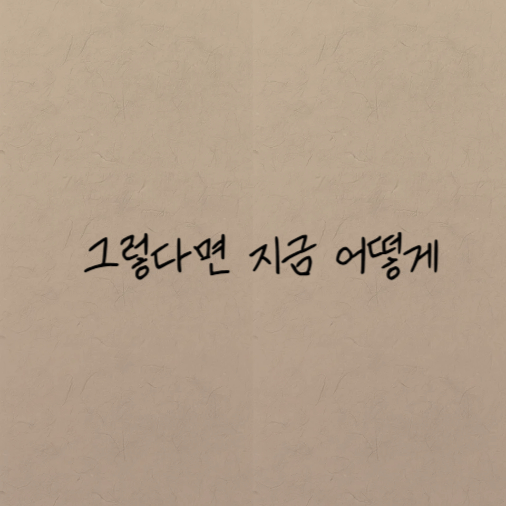 그렇다면 지금 어떻게